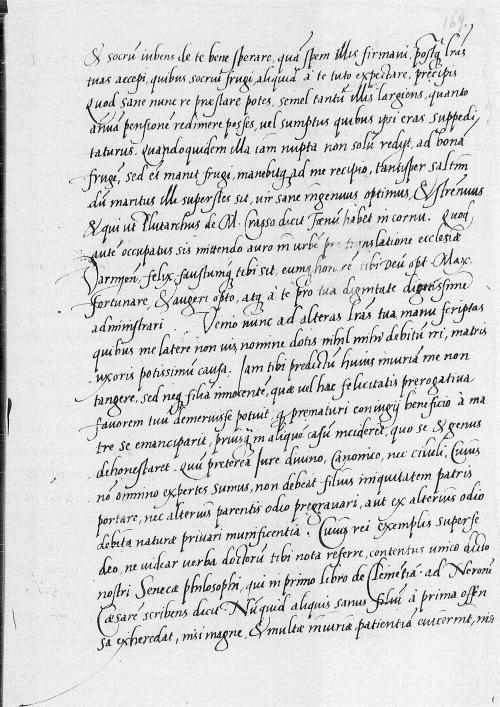 169.
& socrũ iubens de te bene sperare, quã spem illis firmaui, postq̃ lr̃as
tuas accepi, quibus socrũ frugi, aliquid à te tuto expectare, precipis
Quod sane nunc re præstare potes, semel tantũ illis largiens, quanto
annuã pensionẽ redimere posses, uel sumptus quibus ipsi eras suppedi
taturus. quandoquidem illa iam nupta non solũ redijt, ad bonã
frugẽ, sed ei manet frugi, manebitq̃ ad me recipio, tantisper saltim
dũ maritus illi superstes sit, uir sane ingenuus optimus, & strenuus
& qui ut Plutarchus de M. Crasso dicit fœnũ habet in cornu. Quod
autẽ occupatus sis mittendo auro in urbẽ pro translatione ecclesiæ
Varmien, felix, faustumq̃ tibi sit, eumq̃ honorẽ tibi Deũ opt. Max.
fortunare, & augeri opto, atq̃ à te pro tua dignitate dignissime
administrari. Venio nunc ad alteras lr̃as tua manu scriptas
quibus me latere non uis, nomine dotis nihil mihi debitũ iri, matris
uxoris potissimũ causa. Iam tibi predictũ huius iniuriã me non
tangere, sed neq̃ filiã innocentẽ, quæ uel hac felicitatis prerogatiua
fauorem tuũ demeruisse potuit, q̃ prematuri coniugij beneficio à ma
tre se emanciparit, priusq̃ in aliquẽ casũ incideret, quo se & genus
dehonestaret. Quũ preterea Iure diuino, Canonico, nec ciuili, Cuius
nõ omnino expertes sumus, non debeat filius iniquitatem patris
portare, nec alterius parentis odio pregrauari, aut ex alterius odio
debita naturæ priuari munificentia. Cuius rei exemplis superse
deo, ne uidear uerba doctorũ tibi nota referre, contentus unico dicto
nostri Senecæ philosophi, qui in primo libro de Clemẽtia ad Neronẽ
Cæsarẽ scribens dicit Nũquid aliquis sanus filiũ à prima offen
sa exheredat, nisi magnæ, & multæ iniuriæ patientiã euicerint, nisi